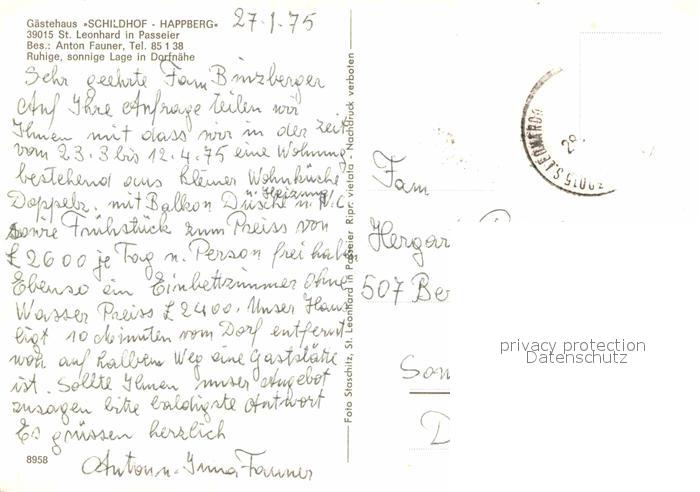 27.1.75
Gästehaus »SCHILDHOF - HAPPBERG«
39015 St. Leonhard in Passeier
Bes.: Anton Fauner, Tel. 85 1 38
Ruhige, sonnige Lage in Dorfnähe
Sehr geehrte Fam Binzberger
Auf Ihre Anfrage teilen wir
Ihnen mit dass wir in der Zeit
vom 23.3 bis 12.4.75 eine Wohnung
bestehend aus kleiner Wohnküche
u. Heizung
Doppelz. mit Balkon Dusche u. W.C
sowie Frühstück zum Preiss von
£ 2600 je Tag u. Person frei haben
Ebenso ein Einbettzimmer ohne
Wasser Preiss £ 2400. Unser Haus
ligt 10 Minuten vom Dorf entfernt
wo auf halbem Weg eine Gaststätte
ist. Sollte Ihnen unser Angebot
zusagen bitte baldigste Antwort
Es grüssen herzlich
Anton u. Irma Fauner
8958
Foto Staschitz, St. Leonhard in Passeier Ripr. vietata - Nachdruck verboten
39015 S. LEONARDO
Fam
Hergar
507 Be
privacy protection
Datenschutz
D